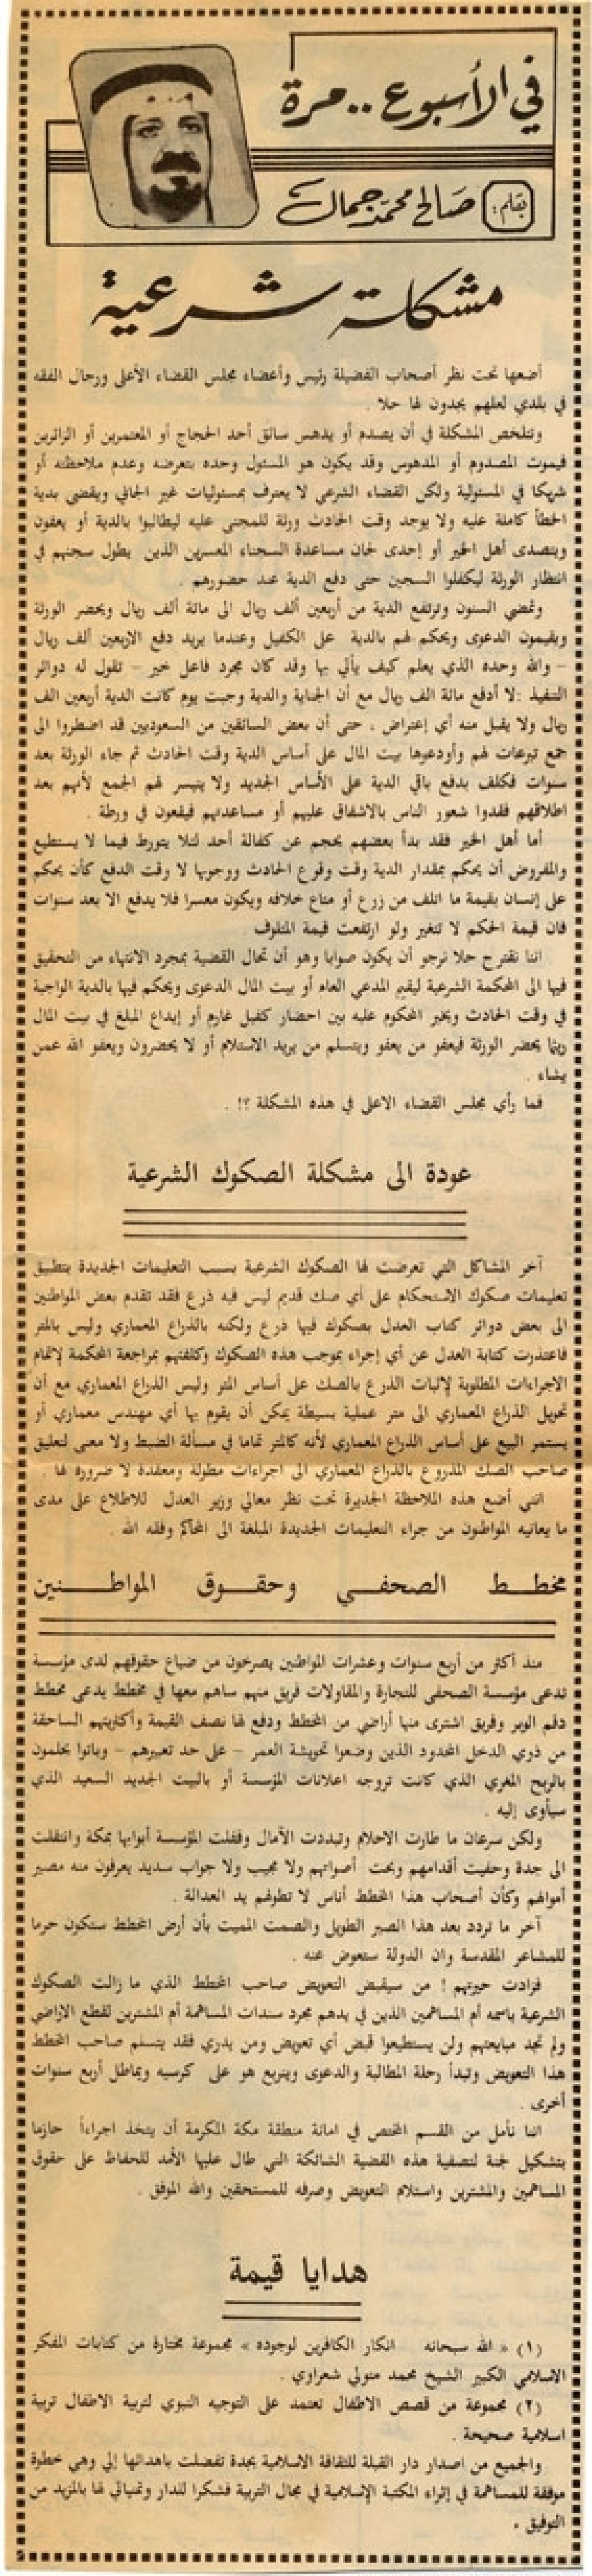 في الأسبوع .. مرة
بقلم: صالح محمد جمال
مشكلة شرعية
أضعها تحت نظر أصحاب الفضيلة رئيس وأعضاء مجلس القضاء الأعلى ورجال الفقه
في بلدي لعلهم يجدون لها حلا .
وتتلخص المشكلة في أن يصدم أو يدهس سائق أحد الحجاج أو المعتمرين أو الزائرين
فيموت المصدوم أو المدهوس وقد يكون هو المسئول وحده بتعرضه وعدم ملاحظته أو
شريكا في المسئولية ولكن القضاء الشرعي لا يعترف بمسئوليات غير الجاني ويقضي بدية
الخطأ كاملة عليه ولا يوجد وقت الحادث ورثة للمجنى عليه ليطالبوا بالدية أو يعفون
ويتصدى أهل الخير أو إحدى لجان مساعدة السجناء المعسرين الذين يطول سجنهم في
انتظار الورثة ليكفلوا السجين حتى دفع الدية عند حضورهم .
وتمضي السنون وترتفع الدية من أربعين ألف ريال الى مائة ألف ريال ويحضر الورثة
ويقيمون الدعوى ويحكم لهم بالدية على الكفيل وعندما يريد دفع الاربعين ألف ريال
– والله وحده الذي يعلم كيف يأتي بها وقد كان مجرد فاعل خير – تقول له دوائر
التنفيذ : لا أدفع مائة الف ريال مع أن الجناية والدية وجبت يوم كانت الدية أربعين الف
ريال ولا يقبل منه أي إعتراض ، حتى أن بعض السائقين من السعوديين قد اضطروا الى
جمع تبرعات لهم وأودعوها بيت المال على أساس الدية وقت الحادث ثم جاء الورثة بعد
سنوات فكلف بدفع باقي الدية على الأساس الجديد ولا يتيسر لهم الجمع لأنهم بعد
اطلاقهم فقدوا شعور الناس بالاشفاق عليهم أو مساعدتهم فيقعون في ورطة .
أما أهل الخير فقد بدأ بعضهم يحجم عن كفالة أحد لئلا يتورط فيما لا يستطيع
والمفروض أن يحكم بمقدار الدية وقت وقوع الحادث ووجوبها لا وقت الدفع كأن يحكم
على إنسان بقيمة ما اتلف من زرع أو متاع خلافه ويكون معسرا فلا يدفع الا بعد سنوات
فان قيمة الحكم لا تتغير ولو ارتفعت قيمة المتلوف .
اننا نقترح حلا نرجو أن يكون صوابا وهو أن تحال القضية بمجرد الانتهاء من التحقيق
فيها الى المحكمة الشرعية ليقيم المدعي العام أو بيت المال الدعوى ويحكم فيها بالدية الواجبة
في وقت الحادث ويخير المحكوم عليه بين احضار كفيل غارم أو إيداع المبلغ في بيت المال
ريثما يحضر الورثة فيعفو من يعفو ويتسلم من يريد الاستلام أو لا يحضرون ويعفو الله عمن
يشاء .
فما رأي مجلس القضاء الاعلى في هذه المشكلة ؟! .
عودة الى مشكلة الصكوك الشرعية
آخر المشاكل التي تعرضت لها الصكوك الشرعية بسبب التعليمات الجديدة بتطبيق
تعليمات صكوك الاستحكام على أي صك قديم ليس فيه ذرع فقد تقدم بعض المواطنين
الى بعض دوائر كتاب العدل بصكوك فيها ذرع ولكنه بالذراع المعماري وليس بالمتر
فاعتذرت كتابة العدل عن أي إجراء بموجب هذه الصكوك وكلفتهم بمراجعة المحكمة لإتمام
الاجراءات المطلوبة لإثبات الذرع بالصك على أساس المتر وليس الذراع المعماري مع أن
تحويل الذراع المعماري الى متر عملية بسيطة يمكن أن يقوم بها أي مهندس معماري أو
يستمر البيع على أساس الذراع المعماري لأنه كالمتر تماما في مسألة الضبط ولا معنى لتعليق
صاحب الصك المذروع بالذراع المعماري الى اجراءات مطولة ومعقدة لا ضرورة لها .
انني أضع هذه الملاحظة الجديرة تحت نظر معالي وزير العدل للاطلاع على مدى
ما يعانيه المواطنون من جراء التعليمات الجديدة المبلغة الى المحاكم وفقه الله .
مخطط الصحفي وحقوق المواطنين
منذ أكثر من أربع سنوات وعشرات المواطنين يصرخون من ضياع حقوقهم لدى مؤسسة
تدعى مؤسسة الصحفي للتجارة والمقاولات فريق منهم ساهم معها في مخطط يدعى مخطط
دقم الوبر وفريق اشترى منها أراضي من المخطط ودفع لها نصف القيمة وأكثريتهم الساحقة
من ذوي الدخل المحدود الذين وضعوا تحويشة العمر – على حد تعبيرهم – وباتوا يحلمون
بالربح المغري الذي كانت تروجه اعلانات المؤسسة أو بالبيت الجديد السعيد الذي
سيأوى إليه .
ولكن سرعان ما طارت الاحلام وتبددت الآمال وقفلت المؤسسة أبوابها بمكة وانتقلت
الى جدة وحفيت أقدامهم وبحت أصواتهم ولا مجيب ولا جواب سديد يعرفون منه مصير
أموالهم وكأن أصحاب هذا المخطط أناس لا تطولهم يد العدالة .
آخر ما تردد بعد هذا الصبر الطويل والصمت المميت بأن أرض المخطط ستكون حرما
للمشاعر المقدسة وان الدولة ستعوض عنه .
فزادت حيرتهم ! من سيقبض التعويض صاحب المخطط الذي ما زالت الصكوك
الشرعية باسمه أم المساهمين الذين في يدهم مجرد سندات المساهمة أم المشترين لقطع الاراضي
ولم تجد مبايعتهم ولن يستطيعوا قبض أي تعويض ومن يدري فقد يتسلم صاحب المخطط
هذا التعويض وتبدأ رحلة المطالبة والدعوى ويتربع هو على كرسيه ويماطل أربع سنوات
أخرى .
اننا نأمل من القسم المختص في امانة منطقة مكة المكرمة أن يتخذ اجراءاً حازما
بتشكيل لجنة لتصفية هذه القضية الشائكة التي طال عليها الأمد للحفاظ على حقوق
المساهمين والمشترين واستلام التعويض وصرفه للمستحقين والله الموفق .
هدايا قيمة
(١) « الله سبحانه انكار الكافرين لوجوده » مجموعة مختارة من كتابات المفكر
الاسلامي الكبير الشيخ محمد متولي شعراوي .
(٢) مجموعة من قصص الاطفال تعتمد على التوجيه النبوي لتربية الاطفال تربية
اسلامية صحيحة .
والجميع من اصدار دار القبلة للثقافة الاسلامية بجدة تفضلت باهدائها إلي وهي خطوة
موفقة للمساهمة في إثراء المكتبة الإسلامية في مجال التربية فشكرا للدار وتمنياتي لها بالمزيد من
التوفيق .